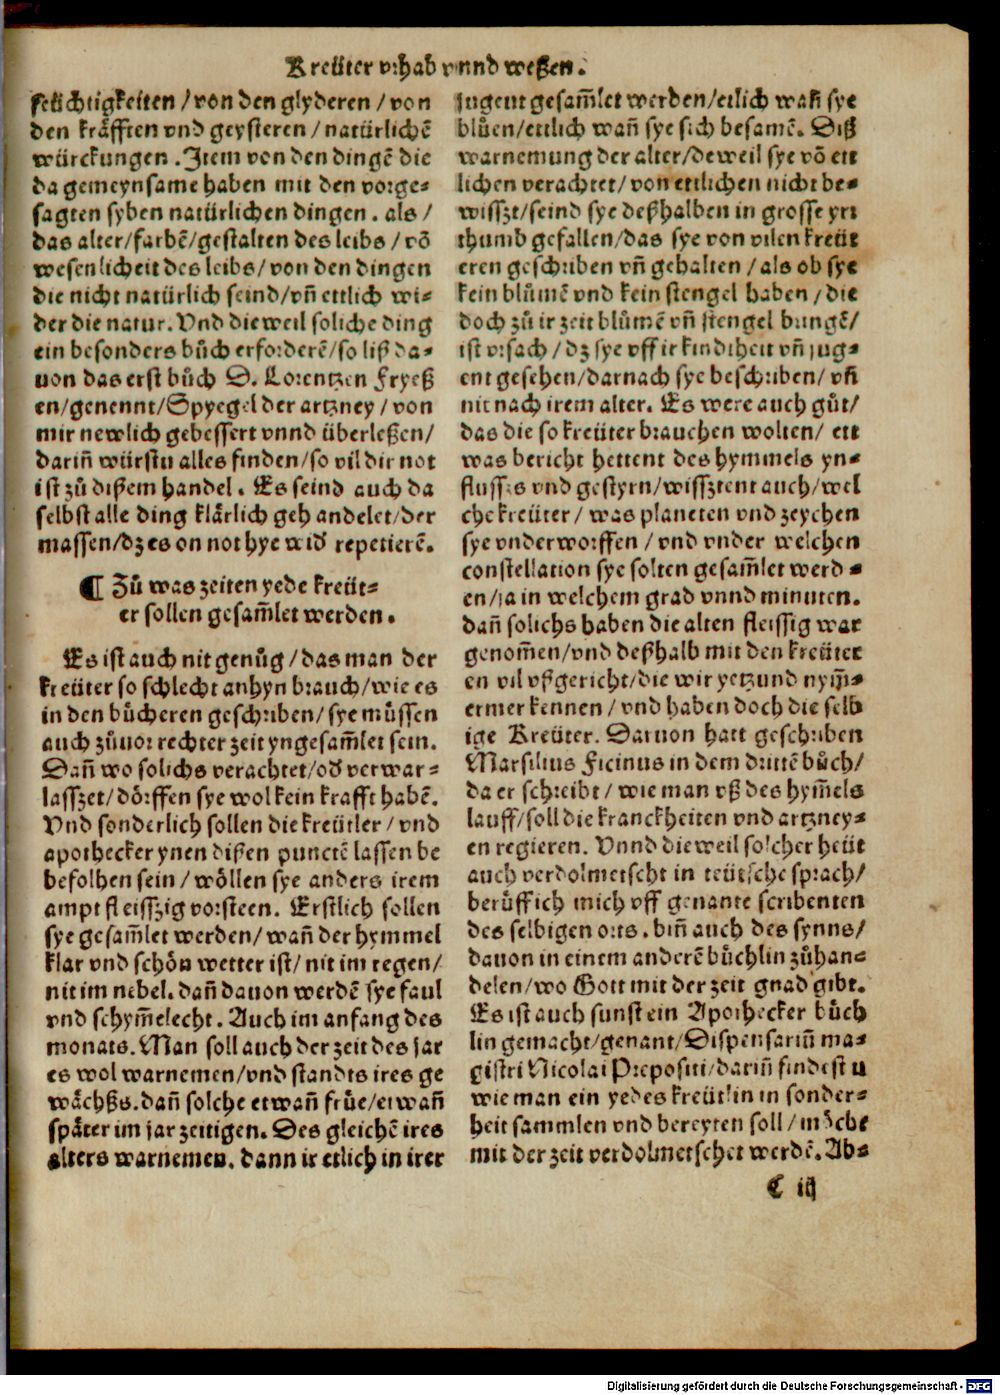 Kreüter vrhab vnnd weßen.
feüchtigkeiten/von den glyderen/von
den kräfften vnd geysteren/natürlichē
würckungen. Item von den dingē die
da gemeynsame haben mit den vorge-
sagten syben natürlichen dingen. als/
das alter/farbē/gestalten des leibs/vō
wesenlicheit des leibs/von den dingen
die nicht natürlich seind/vn̄ ettlich wi-
der die natur. Vnd die weil soliche ding
ein besonders bůch erforderē/so liß da-
uon das erst bůch D. Lorentzen Fryeß
en/genennt/Spyegel der artzney/von
mir newlich gebessert vnnd überleßen/
darin̄ würstu alles finden/so vil dir not
ist zů dißem handel. Es seind auch da
selbst alle ding klärlich gehandelet/der
massen/dz es on not hye wid' repetierē.
¶ Zů was zeiten yede kreüt-
er sollen gesam̄let werden.
Es ist auch nit genůg/das man der
kreüter so schlecht anhyn brauch/wie es
in den bůcheren geschriben/sye müssen
auch zůuor rechter zeit yngesam̄let sein.
Dan̄ wo solichs verachtet/od' verwar-
lasszet/dörffen sye wol kein krafft habē.
Vnd sonderlich sollen die kreütler/vnd
apothecker ynen dißen punctē lassen be
befolhen sein/wöllen sye anders irem
ampt fleisszig vorsteen. Erstlich sollen
sye gesam̄let werden/wan̄ der hymmel
klar vnd schön wetter ist/nit im regen/
nit im nebel. dan̄ dauon werdē sye faul
vnd schym̄elecht. Auch im anfang des
monats. Man soll auch der zeit des jar
es wol warnemen/vnd standts ires ge
wächßs. dan̄ solche etwan̄ früe/etwan̄
später im jar zeitigen. Des gleichē ires
alters warnemen. dann ir etlich in irer
jugent gesam̄let werden/etlich wan̄ sye
blůen/ettlich wan̄ sye sich besamē. Diß
warnemung der alter/deweil sye vō ett
lichen verachtet/von ettlichen nicht be-
wisszt/seind sye deßhalben in grosse yrr
thumb gefallen/das sye von vilen kreüt
eren geschriben vn̄ gehalten/als ob sye
kein blůmē vnd kein stengel haben/die
doch zů ir zeit blůmē vn̄ stengel bringē/
ist vrsach/dz sye vff ir kindtheit vn̄ jug-
ent gesehen/darnach sye beschriben/vn̄
nit nach irem alter. Es were auch gůt/
das die so kreüter brauchen wolten/ett
was bericht hettent des hymmels yn-
fluss.s vnd gestyrn/wissztent auch/wel
che kreüter/was planeten vnd zeychen
sye vnderworffen/vnd vnder welchen
constellation sye solten gesam̄let werd-
en/ja in welchem grad vnnd minuten.
dan̄ solichs haben die alten fleissig war
genom̄en/vnd deßhalb mit den kreüter
en vil vßgericht/die wir yetzund nym̄-
ermer kennen/vnd haben doch die selb
ige Kreüter. Daruon hatt geschriben
Marsilius Ficinus in dem drittē bůch/
da er schreibt/wie man vß des hym̄els
lauff/soll die kranckheiten vnd artzney-
en regieren. Vnnd die weil solcher heüt
auch verdolmetscht in teütsche sprach/
berůff ich mich vff genante scribenten
des selbigen orts. bin̄ auch des synns/
dauon in einem anderē büchlin zůhan-
delen/wo Gott mit der zeit gnad gibt.
Es ist auch sunst ein Apothecker bůch
lin gemacht/genant/Dispensarium̄ ma-
gistri Nicolai Prepositi/darin̄ findest u
wie man ein yedes kreütlin in sonder-
heit sammlen vnd bereyten soll/möcht
mit der zeit verdolmetschet werdē. Ab-
C iij
Digitalisierung gefördert durch die Deutsche Forschungsgemeinschaft - DFG